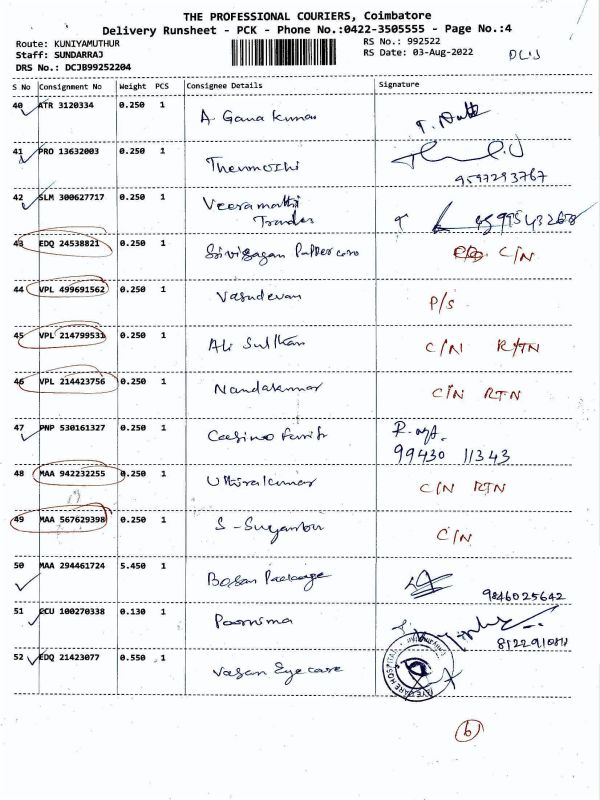 THE PROFESSIONAL COURIERS, Coimbatore
Delivery Runsheet - PCK - Phone No.:0422-3505555 - Page No.:4
Route: KUNIYAMUTHUR RS No.: 992522
Staff: SUNDARRAJ RS Date: 03-Aug-2022
DRS No.: DCJB99252204
S No Consignment No Weight PCS Consignee Details Signature
40 ATR 3120334 0.250 1 A. Gana Kumar
41 PRO 13632003 0.250 1
9597293767
42 SLM 300627717 0.250 1 Veeramathi
Traders
43 EDQ 24538821 0.250 1 C/N
44 VPL 499691562 0.250 1 Vasudevan P/S
45 VPL 214799531 0.250 1 Ali Sulthan C/N RTN
46 VPL 214423756 0.250 1 Nandakumar C/N RTN
47 PNP 530161327 0.250 1
99430 11343
48 MAA 942232255 0.250 1 Uthirakumar C/N RTN
49 MAA 567629398 0.250 1 C/N
50 MAA 294461724 5.450 1 Package
9846025642
51 CCU 100270338 0.130 1 Poornima
52 EDQ 21423077 0.550 1 Vasan Eye care
EYE CARE HOSPITAL
b